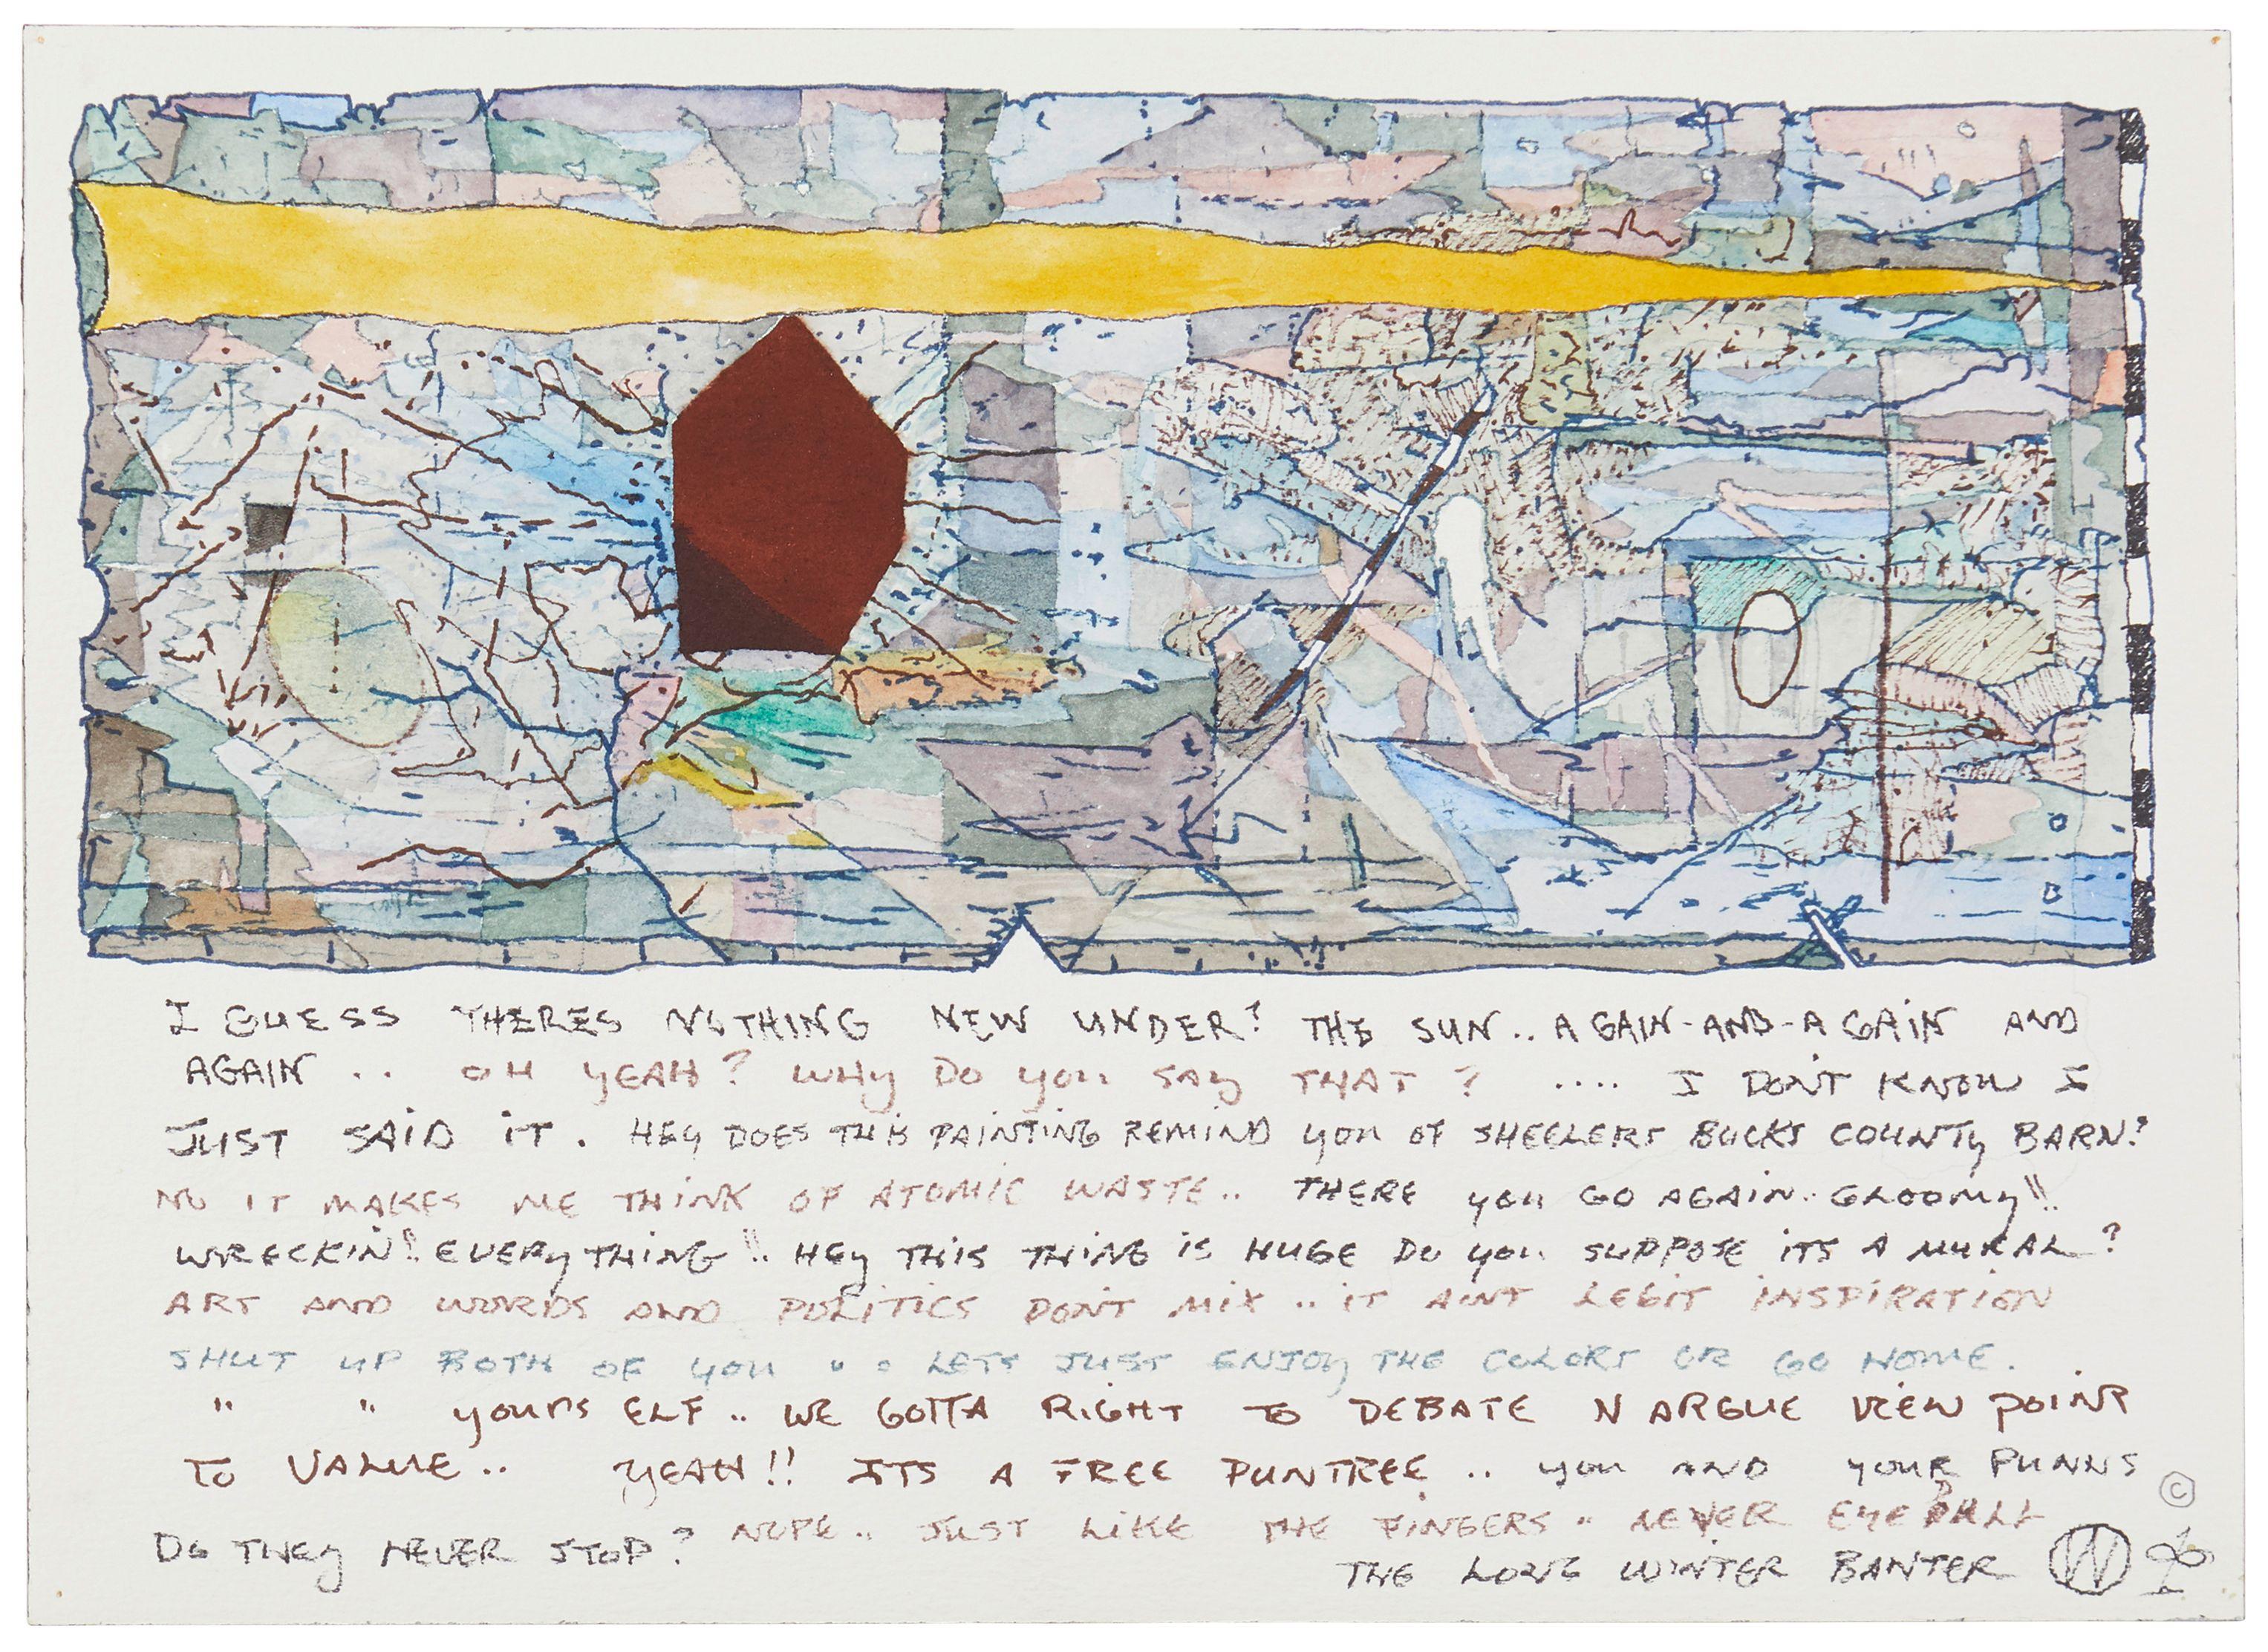 I GUESS THERES NOTHING NEW UNDER? THE SUN.. AGAIN-AND-AGAIN AND
AGAIN .. OH YEAH? WHY DO YOU SAY THAT? .... I DON'T KNOW I
JUST SAID IT. HEY DOES THIS PAINTING REMIND YOU OF SHEELERS BUCKS COUNTY BARN?
NO IT MAKES ME THINK OF ATOMIC WASTE.. THERE YOU GO AGAIN.. GLOOMY!!
WRECKIN! EVERYTHING!! HEY THIS THING IS HUGE DO YOU SUPPOSE ITS A MURAL?
ART AND WORDS AND POLITICS DON'T MIX .. IT AINT LEGIT INSPIRATION
SHUT UP BOTH OF YOU .. LETS JUST ENJOY THE COLORS OR GO HOME.
" " YOURS ELF .. WE GOTTA RIGHT TO DEBATE N ARGUE VIEW POINT
TO VALUE .. YEAH!! ITS A FREE PUNTREE .. YOU AND YOUR PUNNS
DO THEY NEVER STOP? NOPE.. JUST LIKE THE FINGERS ..
THE LONG WINTER BANTER W ©